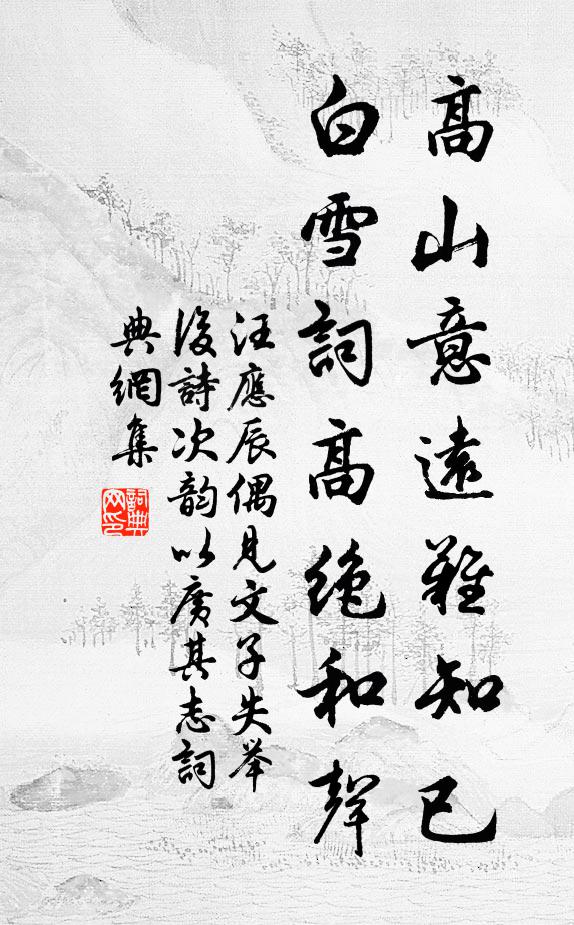 高山意遠難知己
白雪詞高絶和聲
汪應辰偶見文子失举
後詩次韵以廣其志詞
典網集
詞典
网印